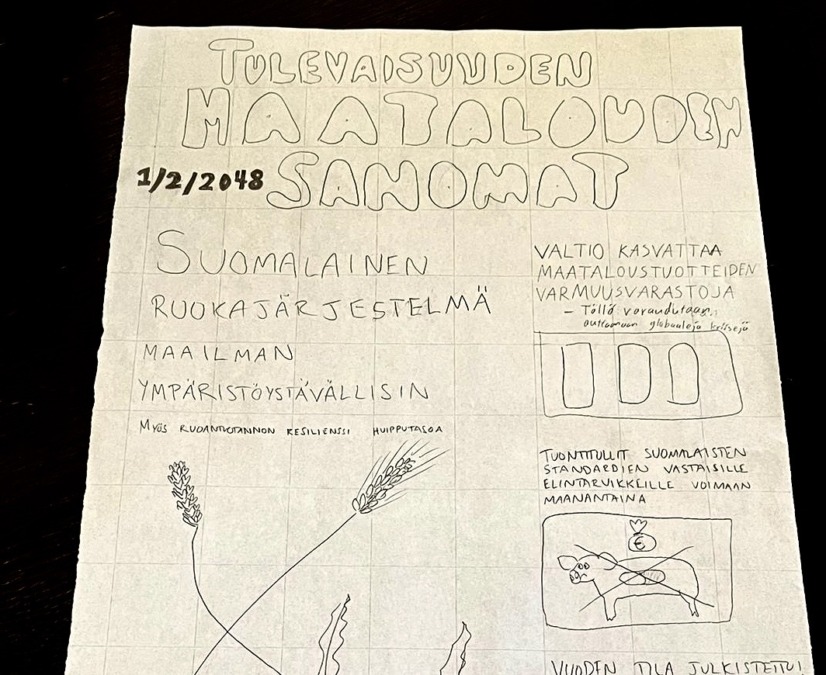 TULEVAISUUDEN
MAATALOUDEN
1/2/2048 SANOMAT
SUOMALAINEN
RUOKAJÄRJESTELMÄ
MAAILMAN
YMPÄRISTÖYSTÄVÄLLISIN
MYÖS RUOANTUOTANNON RESILIENSSI HUIPPUTASOA
VALTIO KASVATTAA
MAATALOUSTUOTTEIDEN
VARMUUSVARASTOJA
- Tällä varaudutaan
globaaleja kriisejä
TUONTITULLIT SUOMALAISTEN
STANDARDIEN VASTAISILLE
ELINTARVIKKEILLE VOIMAAN
MAANANTAINA
€
VUODEN TILA JULKISTETTU!